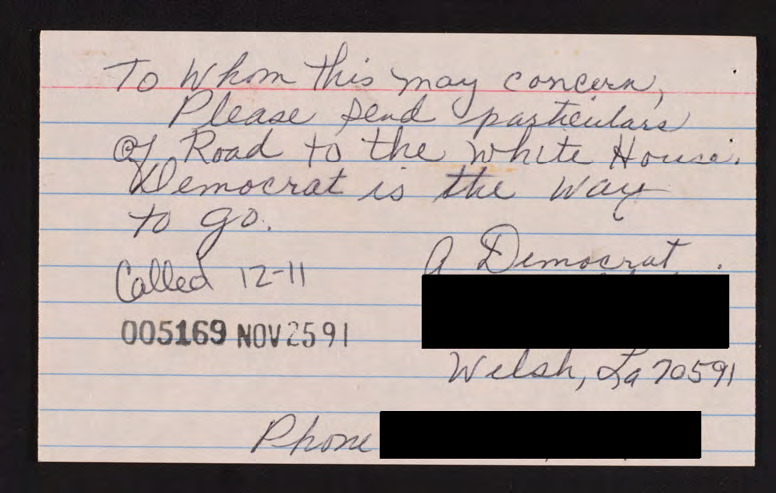 To Whom this may concern,
Please send particulars
of Road to the White House.
Democrat is the way
to go.
A Democrat
Called 12-11
005169 NOV 25 91
Welsh, La 70591
Phone